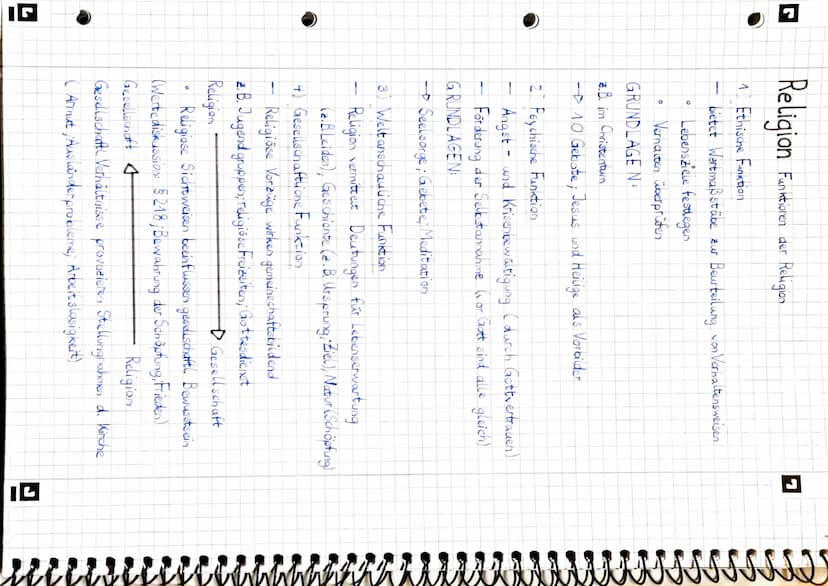 Religion Funktionen der Religion
1. Ethische Funktion
– bietet Wertmaßstäbe zur Beurteilung von Verhaltensweisen
• Lebensziele festlegen
• Verhalten überprüfen
GRUNDLAGEN:
z.B. im Christentum
→ 10 Gebote; Jesus und Heilige als Vorbilder
2. Psychische Funktion
– Angst- und Krisenbewältigung (durch Gottvertrauen)
– Förderung der Selbstannahme (vor Gott sind alle gleich)
GRUNDLAGEN:
→ Seelsorge; Gebete; Meditation
3) Weltanschauliche Funktion
– Religion vermittelt Deutungen für Lebenserwartung
(z.B Leiden), Geschichte (z.B. Ursprung, Ziel), Natur (Schöpfung)
4) Gesellschaftliche Funktion
– Religiöse Vorzüge wirken gemeinschaftsbildend
z.B. Jugendgruppen, religiöse Freizeiten; Gottesdienst
Religion → Gesellschaft
• Religiöse Sichtweisen beeinflussen gesellschaftl. Bewusstsein
(Wertediskussion: § 218; Bewahrung der Schöpfung, Frieden)
Gesellschaft ← Religion
Gesellschaftl. Verhältnisse provozieren Stellungnahmen d. Kirche
(Armut, Ausländerprobleme; Arbeitslosigkeit)